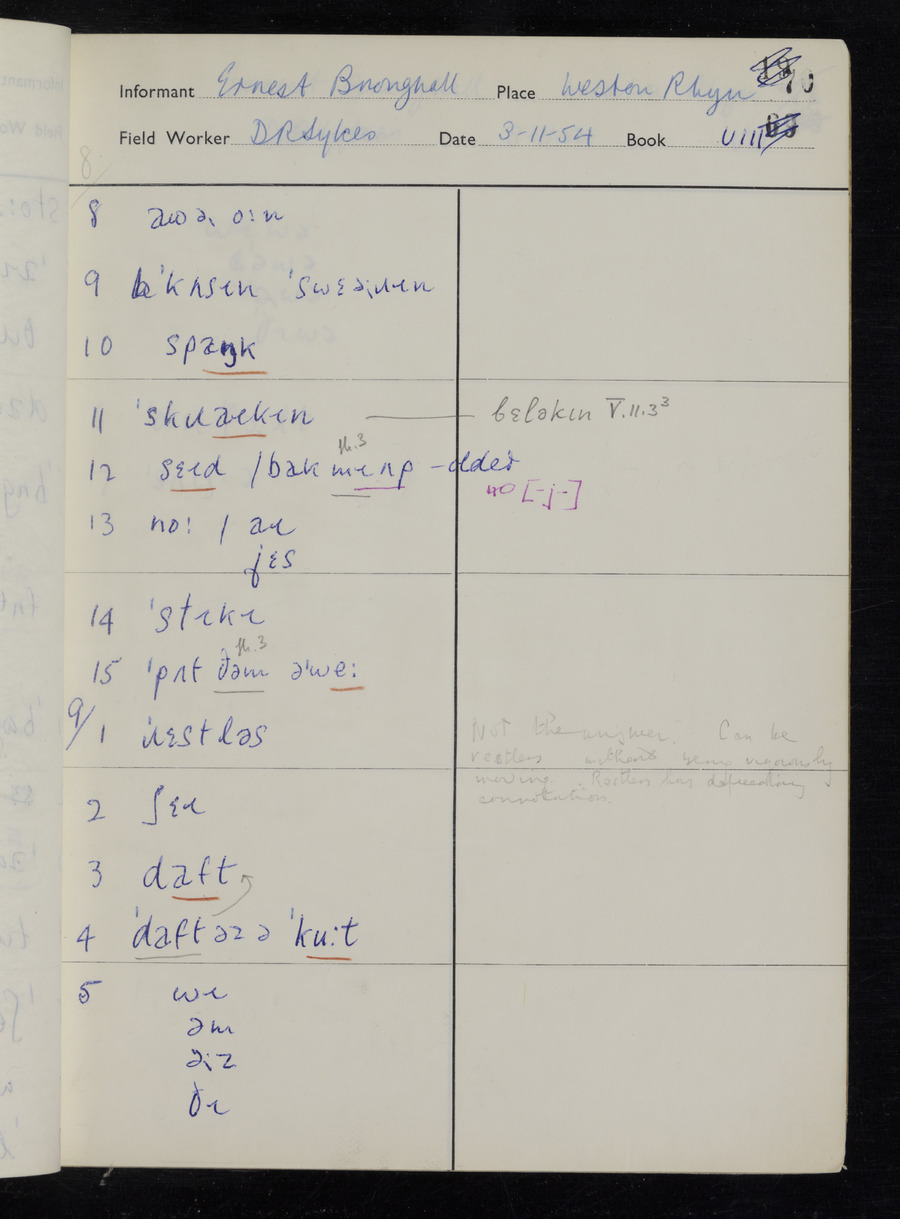 Informant Ernest Broughall Place Weston Rhyn 70
Field Worker D R Sykes Date 3-11-54 Book VIII
8
8 oːn
9 ˈkʌsɪn ˈswɛəɹɪn
10 spaŋk
11 ˈskɹaɪkɪn bɛləkɪn V.11.3³
ph.3
12 sɛɪd / bak mɪ ʌp – older
no [-j-]
13 noː / aɪ
jɛs
14 ˈstɪkɪ
ph.3
15 ˈpʌt ðəm əˈweː
9/1 ˈɹɛstləs Not the answer. Can be
restless without being vigorously
moving. Restless has
connotation.
2 ʃɛɪ
3 daft
4 ˈdaft əz ə ˈkuːt
5 wɪ
əm
əɹz
ðɪ